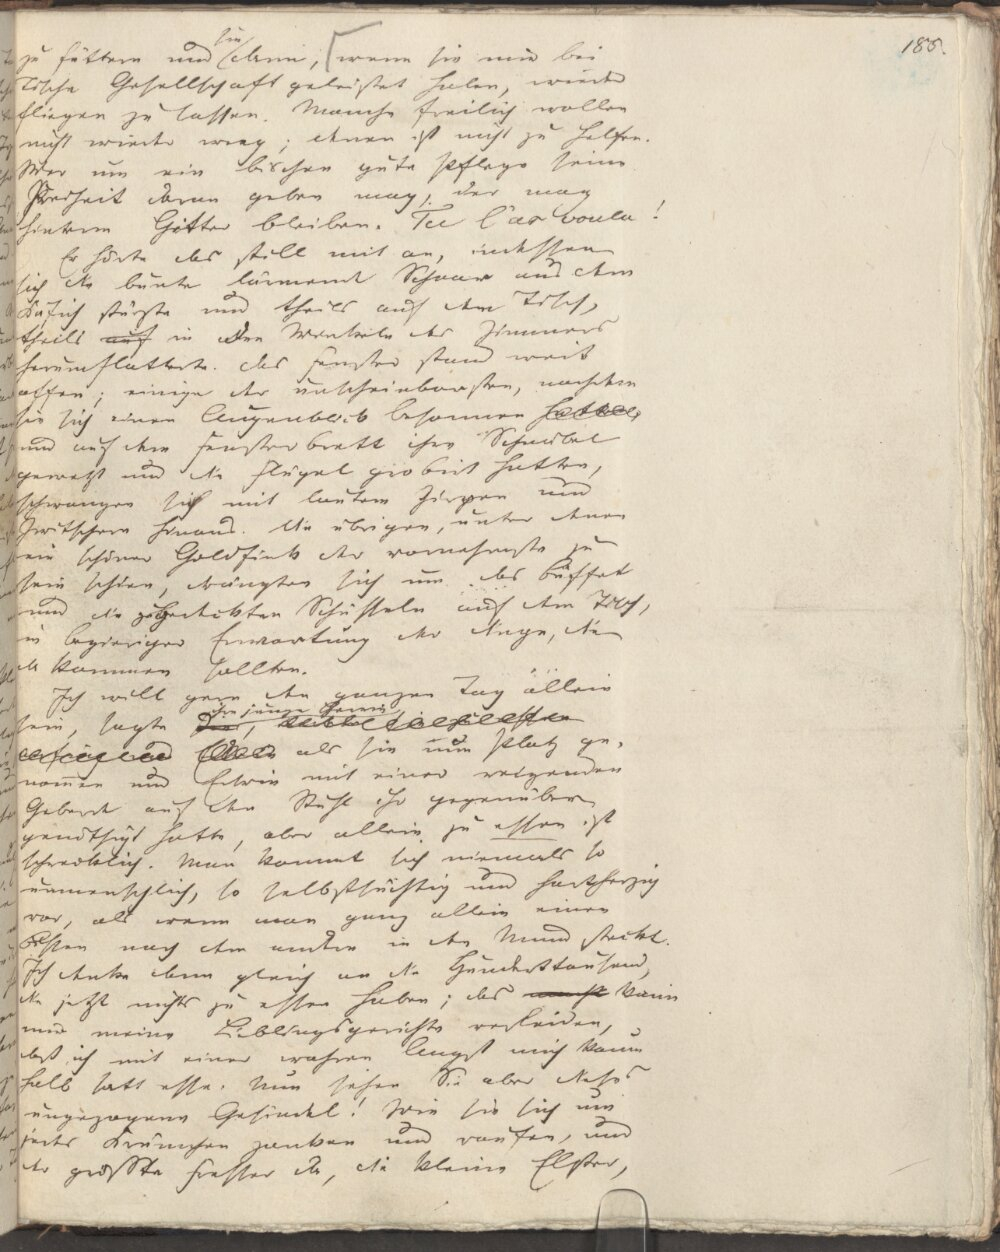 185.
zu füttern und sie dann, wenn sie mir bei
Tische Gesellschaft geleistet haben, wieder
fliegen zu lassen. Manche freilich wollen
nicht wieder weg; denen ist nicht zu helfen.
Wer um ein bischen gute Pflege seine
Freiheit dran geben mag, der mag
hinterm Gitter bleiben. Tu l'as voulu!
Er hörte das still mit an, indessen
sich die bunte lärmende Schaar aus dem
Käfich stürzte und theils auf den Tisch,
theils auf in den Winkeln des Zimmers
herumflatterte. Das Fenster stand weit
offen; einige der unscheinbarsten, nachdem
sie sich einen Augenblick besonnen hatten
und auf dem Fensterbrett ihre Schnäbel
gewetzt und die Flügel probirt hatten,
schwangen sich mit lautem Zirpen und
Zwitschern hinaus. Die übrigen, unter denen
ein schöner Goldfink der vornehmste zu
sein schien, drängten sich um das Büffet
und die zugedeckten Schüsseln auf dem Tisch,
in begieriger Erwartung der Dinge, die
da kommen sollten.
Ich will gern den ganzen Tag allein
sein, sagte die junge Herrin,
als sie nun Platz ge-
nommen und Edwin mit einer reizenden
Geberde auf den Stuhl ihr gegenüber
genöthigt hatte, aber allein zu essen ist
schrecklich. Man kommt sich niemals so
unmenschlich, so selbstsüchtig und hartherzig
vor, als wenn man ganz allein einen
Bissen nach dem andern in den Mund steckt.
Ich denke dann gleich an die Hunderttausend,
die jetzt nichts zu essen haben; das kann
mir meine Lieblingsgerichte verleiden,
daß ich mit einer wahren Angst mich kaum
halb satt esse. Nun sehen Sie aber dieses
ungezogene Gesindel! Wie sie sich um
jedes Krümchen zanken und raufen, und
der größte Fresser da, die kleine Elster,